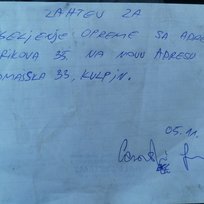 ZAHTEV ZA
SELJENJE OPREME SA ADRE
RIKOVA 35, NA NOVU ADRESU
OMAŠSKA 33, KULPIN.
05.11.